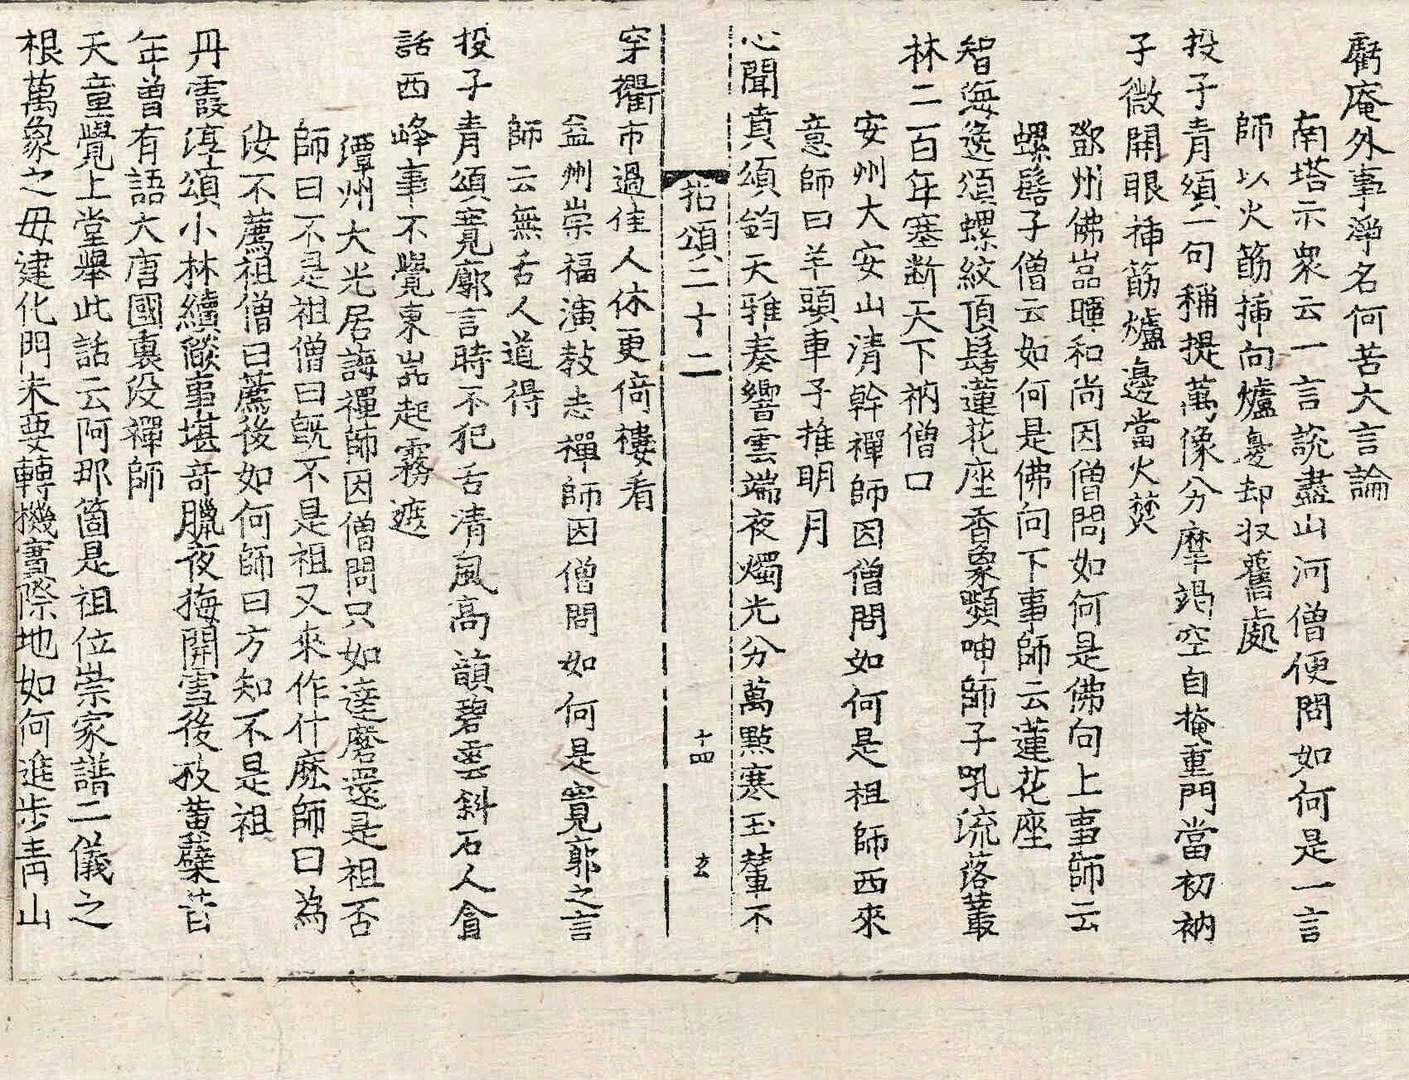 虧庵外事淨名何苦大言論
南塔示衆云一言說盡山河僧便問如何是一言
師以火筯揷向爐邊却收舊處
投子青頌一句稱提萬像分摩竭空自掩重門當初衲
子微開眼揷筯爐邊當火焚
鄧州佛嵓暉和尚因僧問如何是佛向上事師云
螺髻子僧云如何是佛向下事師云蓮花座
智海逸頌螺紋頂髻蓮花座香象嚬呻師子吼流落叢
林二百年塞断天下衲僧口
安州大安山清幹禪師因僧問如何是祖師西來
意師曰羊頭車子推明月
心聞賁頌鈞天雅奏響雲端夜燭光分萬點寒玉輦不
拈頌二十二 十四 玄
穿衢市過佳人休更倚樓看
益州崇福演教志禪師因僧問如何是寬廓之言
師云無舌人道得
投子青頌寬廓言時不犯舌清風高韻碧雲斜石人會
話西峰事不覺東嵓起霧遮
潭州大光居誨禪師因僧問只如達磨還是祖否
師曰不是祖僧曰旣不是祖又來作什麽師曰為
汝不薦祖僧曰薦後如何師曰方知不是祖
丹霞淳頌小林續燄事堪奇臘夜梅開雪後枝黃蘗昔
年曾有語大唐國裏没禪師
天童覺上堂擧此話云阿那箇是祖位崇家譜二儀之
根萬象之毋建化門未要轉機實際地如何進步靑山